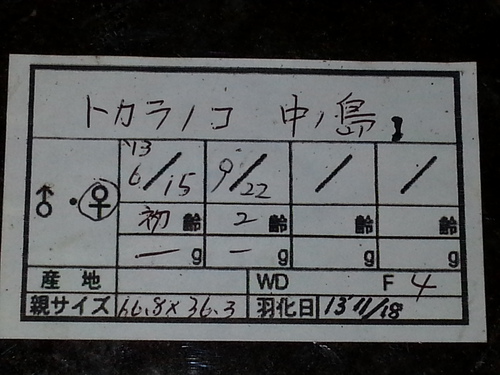 トカラノコ 中ノ島
'13
6/15 9/22 / /
♂・♀ 初齢 2齢 齢 齢
ーg ーg g g
産地 WD F 4
親サイズ 66.8×36.3 羽化日 13'11/18